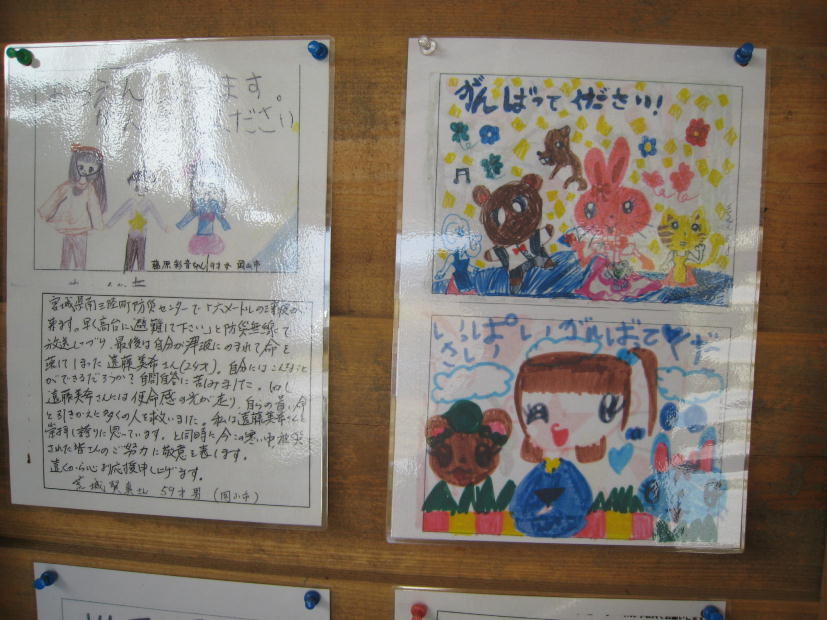 えん ます。
ださい
岡山市
宮城県南三陸町防災センターで「六メートルの津波が
来ます。早く高台に避難して下さい」と防災無線で
放送しつづけ、最後は自分が津波にのまれて命を
落してしまった遠藤美希さん(24才)。自分にはこんなこと
ができるだろうか?自問自答に苦しみました。しかし
遠藤美希さんには使命感の光が走り、自らの尊い命
と引きかえに多くの人を救いました。私は遠藤美希さんを
崇拝し誇りに思っています。と同時に今この寒い中被災
された皆さんのご努力に敬意を表します。
遠くから心より応援申し上げます。
宮城 さん 59才男 (岡山市)
がんばってください!
いっぱいがんばって♥くだ
さい!